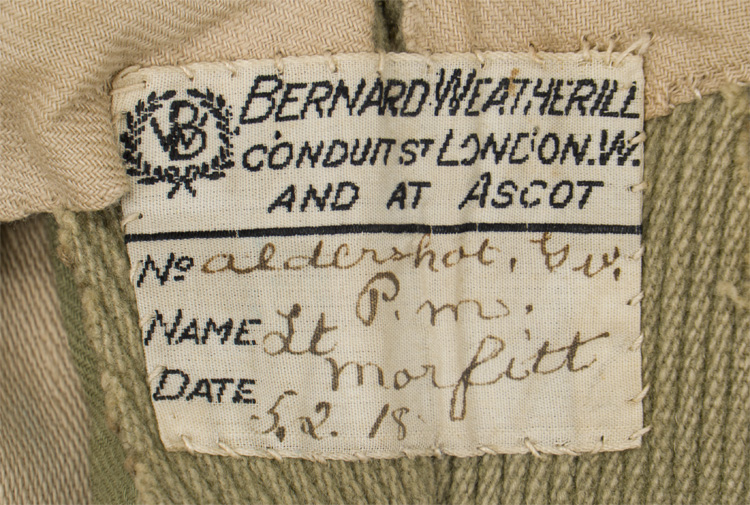 BERNARD WEATHERILL
CONDUIT ST LONDON. W.
AND AT ASCOT
No aldershot.
P. M.
NAME Lt
Morfitt
DATE
5. 2. 18